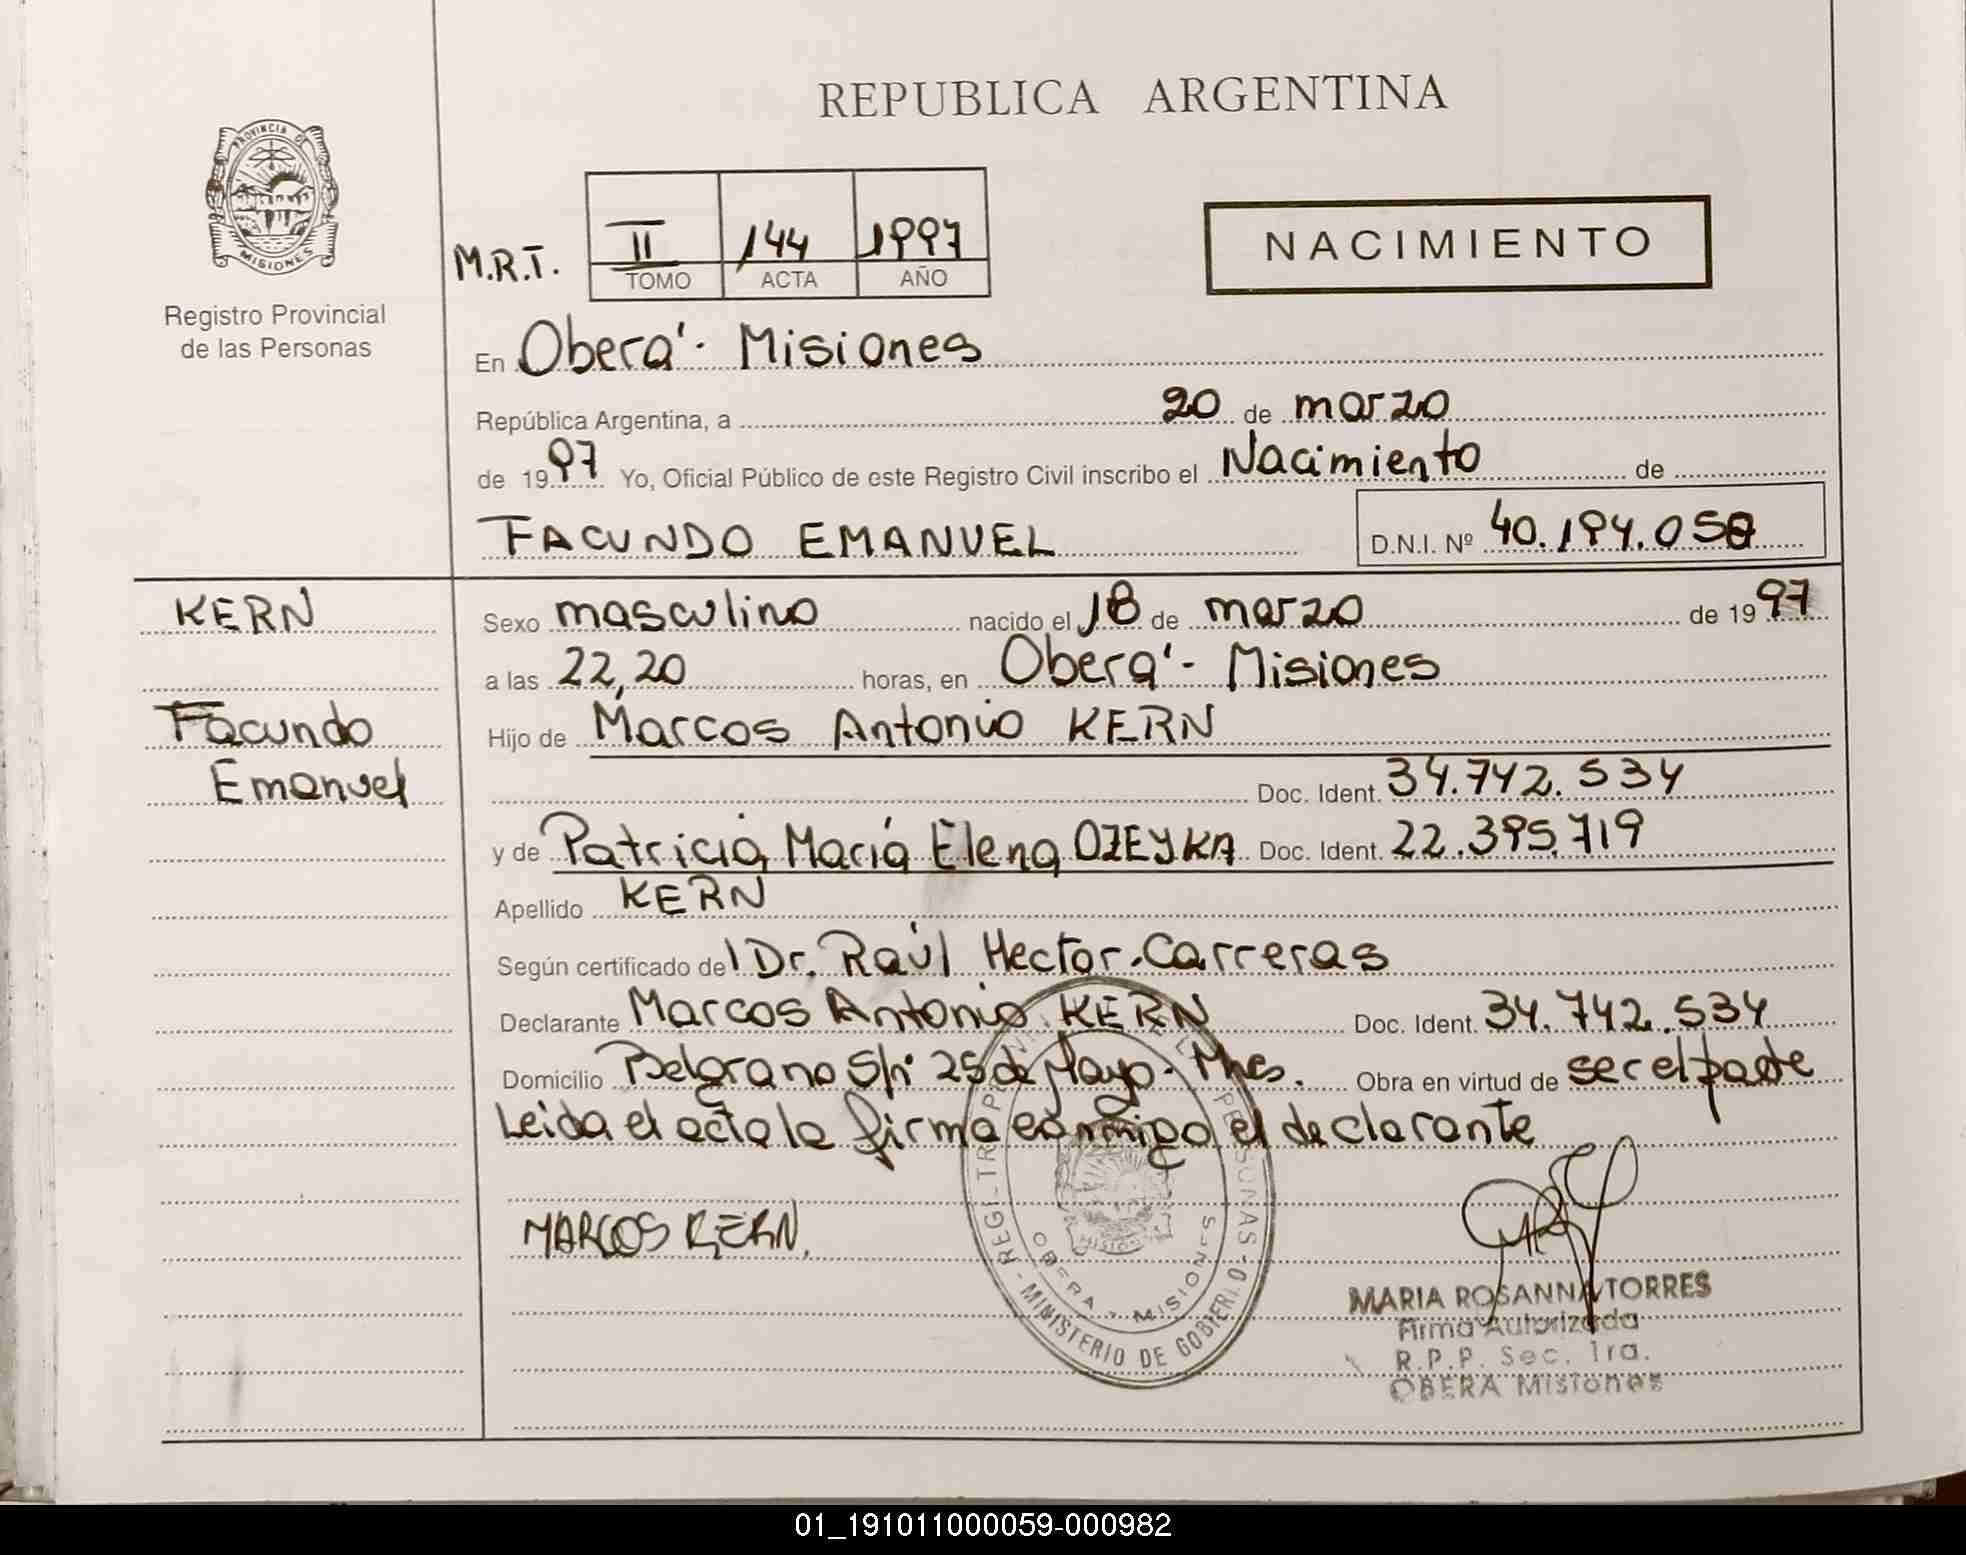 REPUBLICA ARGENTINA
PROVINCIA DE
MISIONES
Registro Provincial
de las Personas
M.R.T.
II 144 1997
TOMO ACTA AÑO
NACIMIENTO
En Oberá - Misiones
República Argentina, a 20 de marzo
de 1997 Yo, Oficial Público de este Registro Civil inscribo el Nacimiento de
FACUNDO EMANUEL D.N.I. Nº 40.194.058
KERN
Facundo
Emanuel
Sexo masculino nacido el 18 de marzo de 1997
a las 22,20 horas, en Oberá - Misiones
Hijo de Marcos Antonio KERN
Doc. Ident. 34.742.534
y de Patricia María Elena OZEYKA Doc. Ident. 22.395.719
Apellido KERN
Según certificado del Dr. Raúl Hector Carreras
Declarante Marcos Antonio KERN Doc. Ident. 34.742.534
Domicilio Belgrano S/n 25 de Mayo - Mnes. Obra en virtud de ser el padre
Leida el acta la firma conmigo el declarante
MARCOS KERN.
OBERA - MISIONES
MINISTERIO DE GOBIERNO
MARIA ROSANNA TORRES
Firma Autorizada
R.P.P. Sec. 1ra.
OBERA Misiones
01_191011000059-000982